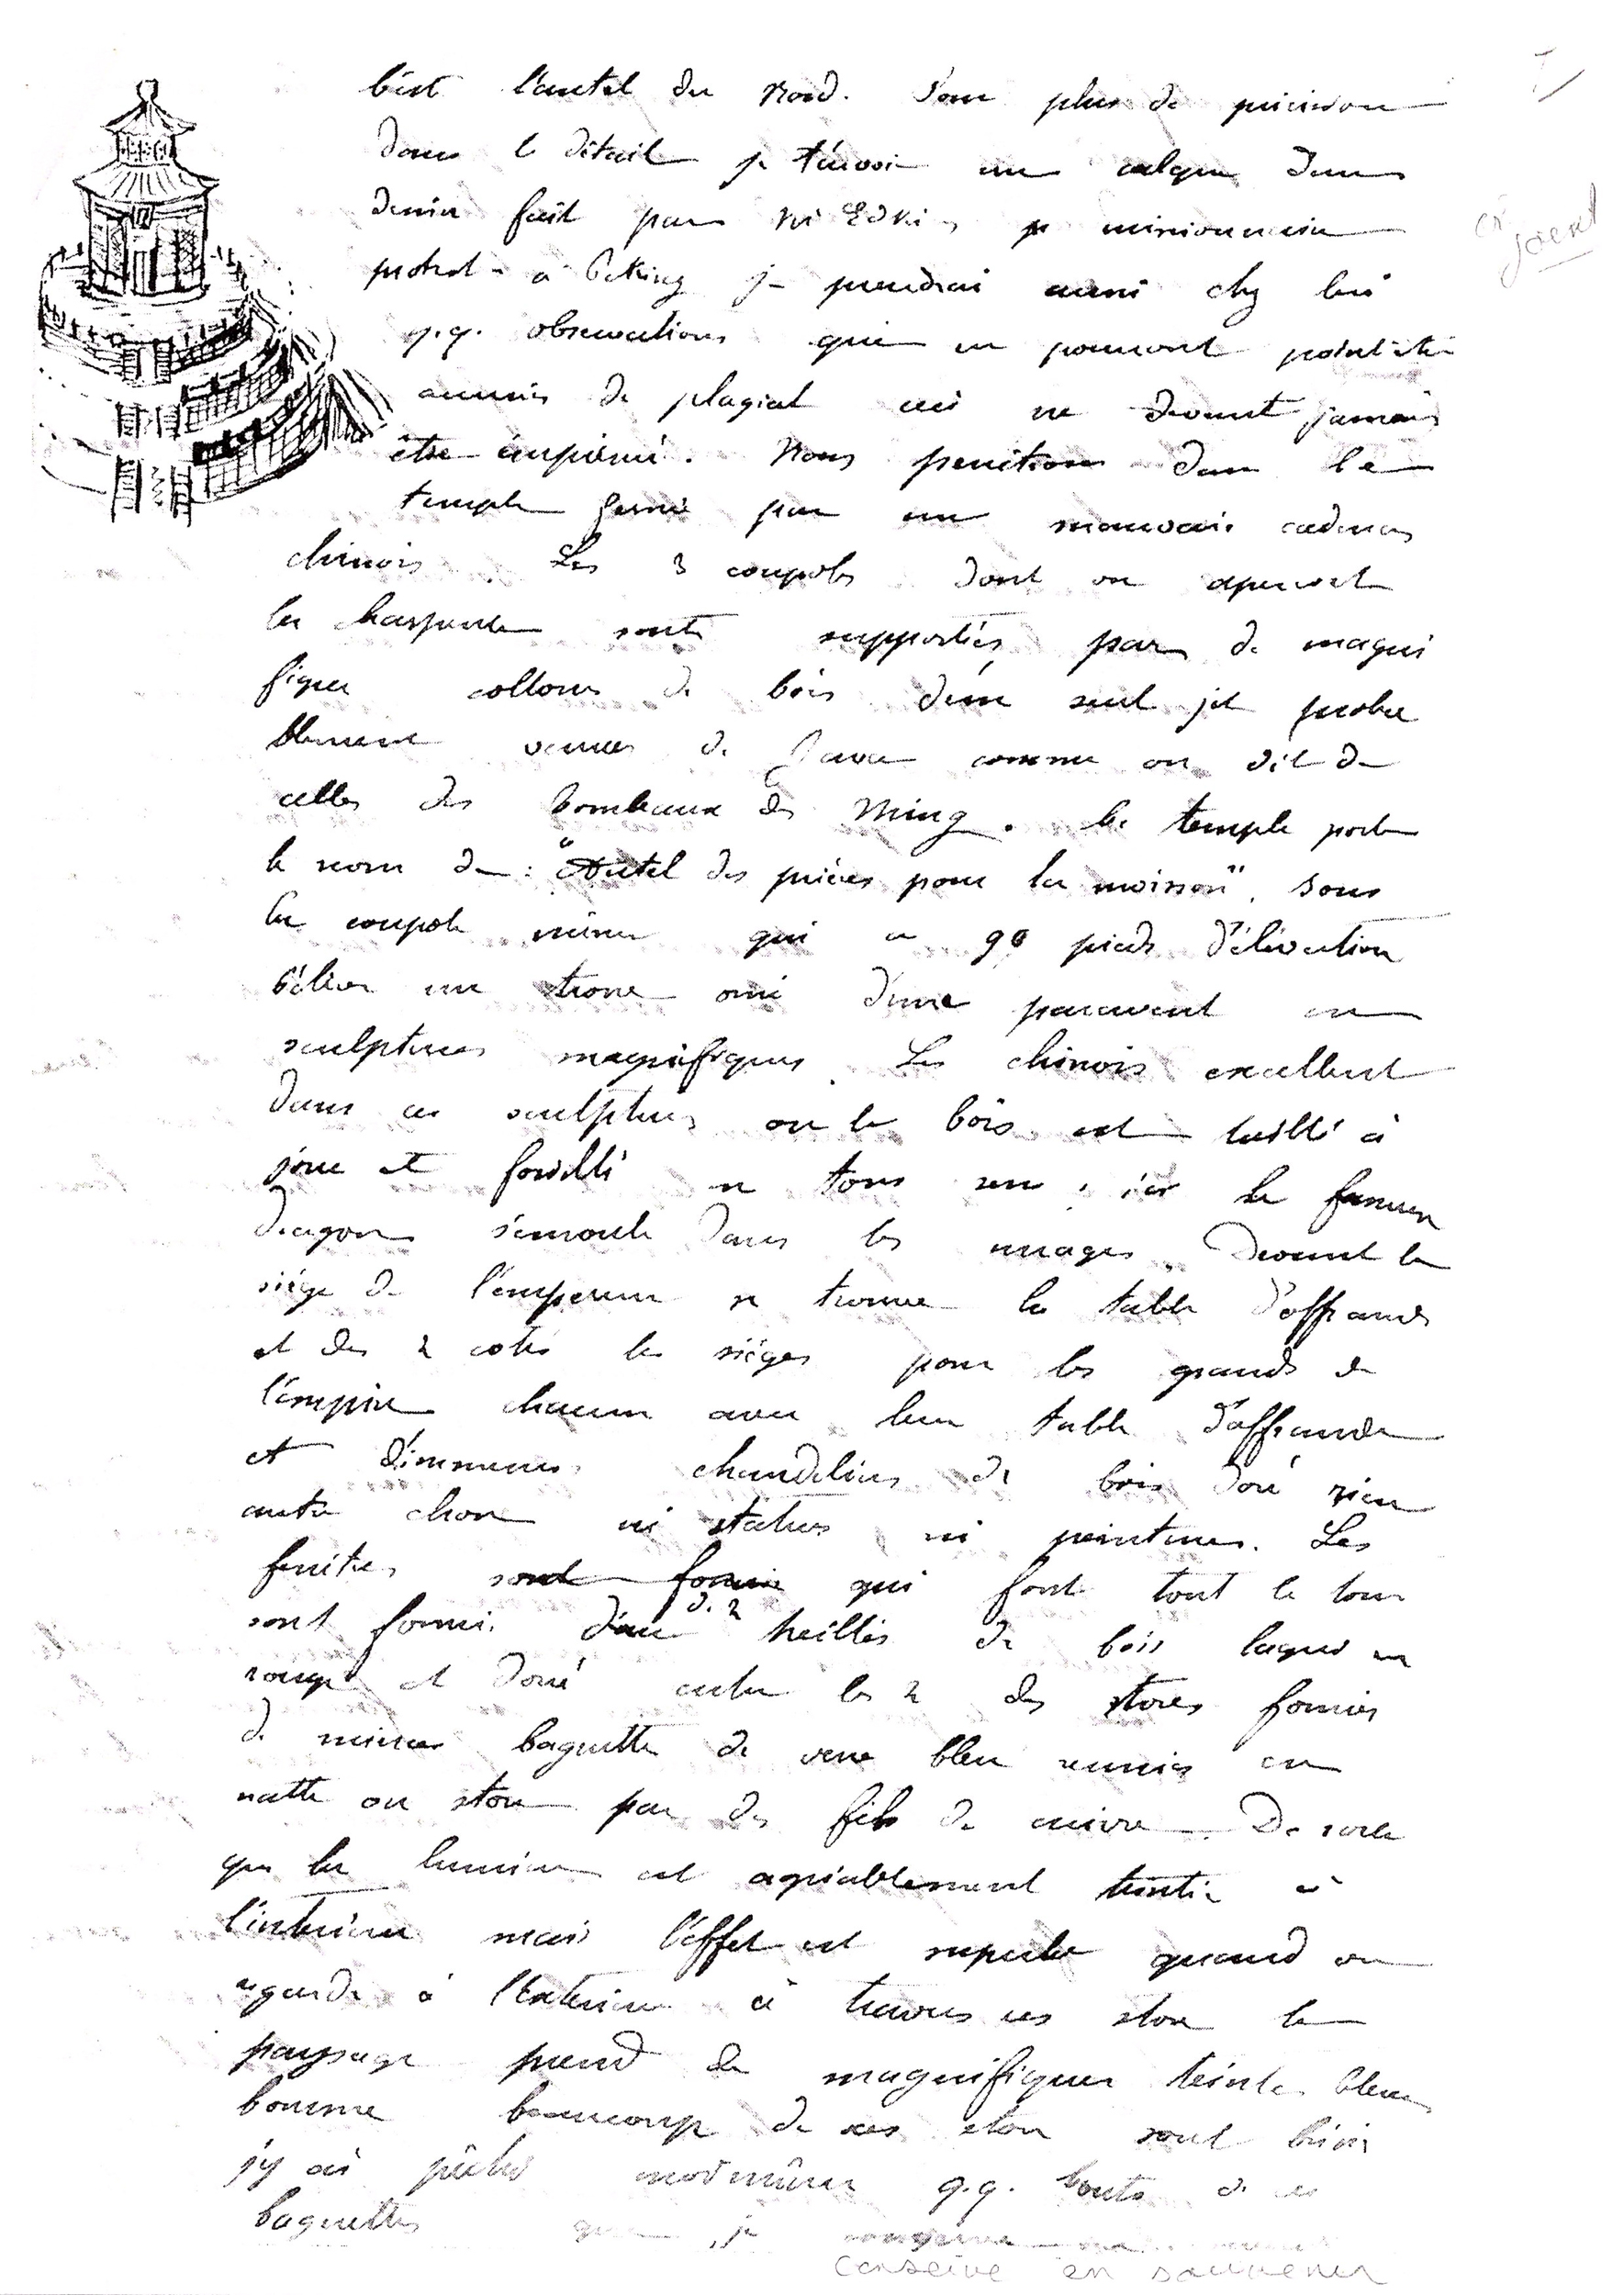 C'est l'autel du Nord. Pour plus de précision
dans le détail je t'envoie un calque d'un
dessin fait par Mr Edkins, missionnaire
protest. à Peking je prendrai aussi chez lui
q.q. observations qui ne pourront point être
accusés de plagiat ceci ne devant jamais
être imprimé. Nous penetrons dans le
temple fermé par un mauvais cadenas
chinois. Les 3 coupoles dont on aperçoit
la charpente sont supportées par de magni
fiques collones de bois d'un seul jet proba
blement venues de Java comme on dit de
celles des tombeaux des Ming. Ce temple porte
le nom de : "Autel des prières pour la moisson". Sous
la coupole qui a 90 pieds d'élévation
s'élève un trone orné d'une paravent en
sculptures magnifiques. Les chinois excellent
dans ces sculptures ou le bois est taillé à
jour et fouillé en tous sens, ici le fameux
dragon s'enroule dans les nuages. Devant le
siège de l'empereur se trouve la table d'offrande
et des 2 cotés les sièges pour les grands de
l'empire chacun avec leur table d'offrande
et d'immenses chandeliers de bois doré rien
autre chose ni statues ni peintures. Les
fenêtres sont formées qui font tout le tour
sont formées de 2 treillis de bois laqué en
rouge et doré entre les 2 des stores formés
de minces baguettes de verre bleu reunies en
natte ou store par des fils de cuivre. De sorte
que la lumière est agréablement teintée à
l'interieur mais l'effet est superbe quand on
regarde à l'exterieur à travers ces store le
paysage prend de magnifiques teintes bleues
Comme beaucoup de ces store sont brisés
j'y ai pêché moi même q.q. bouts de ces
baguettes que je conserve
conserve en souvenir